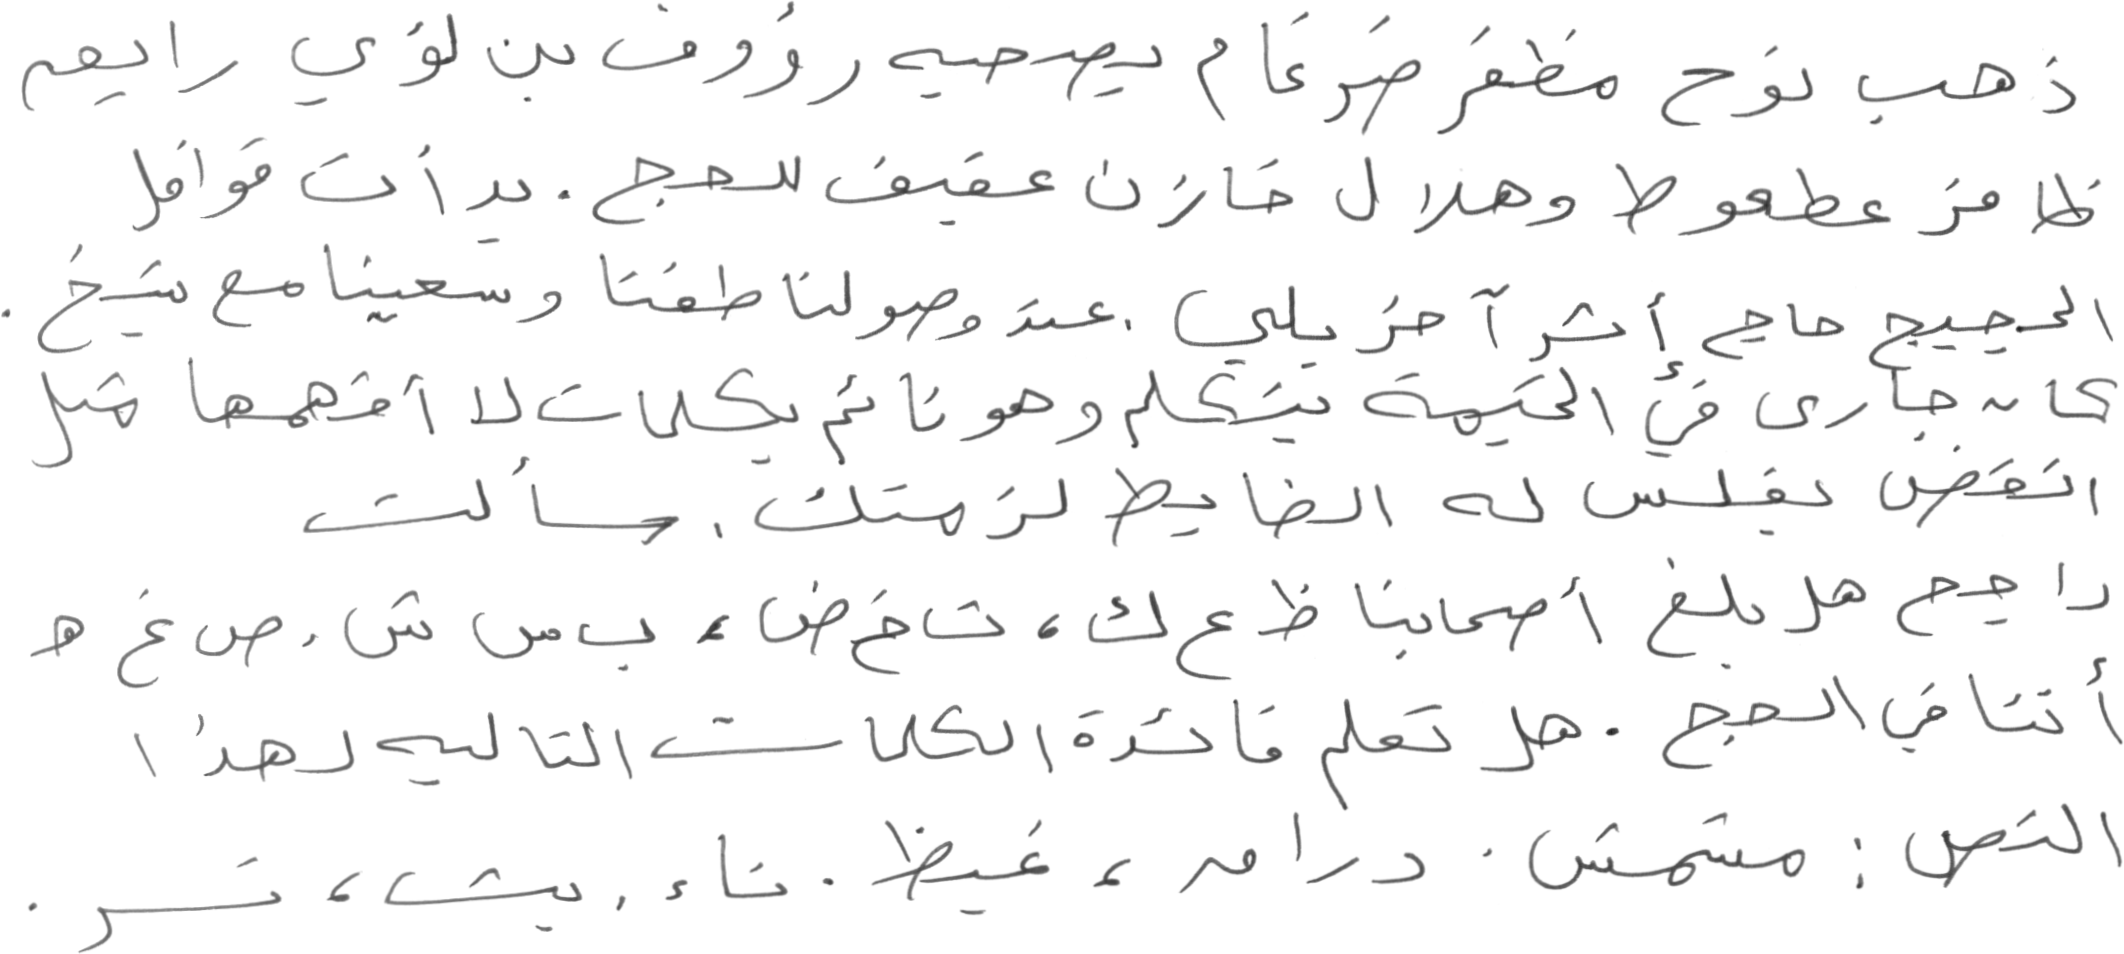 ذهب نوح مظفر ضرغام بصحبه رؤوف بن لؤي رايعه
ظافر عطعوط وهلال خازن عفيف للحج . بدأت قوافل
الحجيج حاج أثر آخر بلي . عند وصولنا طفنا وسعينا مع شيخ .
كان جاري في الخيمة يتكلم وهو نائم بكلمات لا أفهمها مثل
انقض نفلس له الضابط لزمتك . سألت
راجح هل بلغ أصحابنا ظ ع ك ، ث خ ض ، ب س ش . ص غ ه
أننا في الحج . هل تعلم فائدة الكلمات التاليه لهذا
النص : مشمش . درامه ، غيظ . ناء . بيث ، نر .